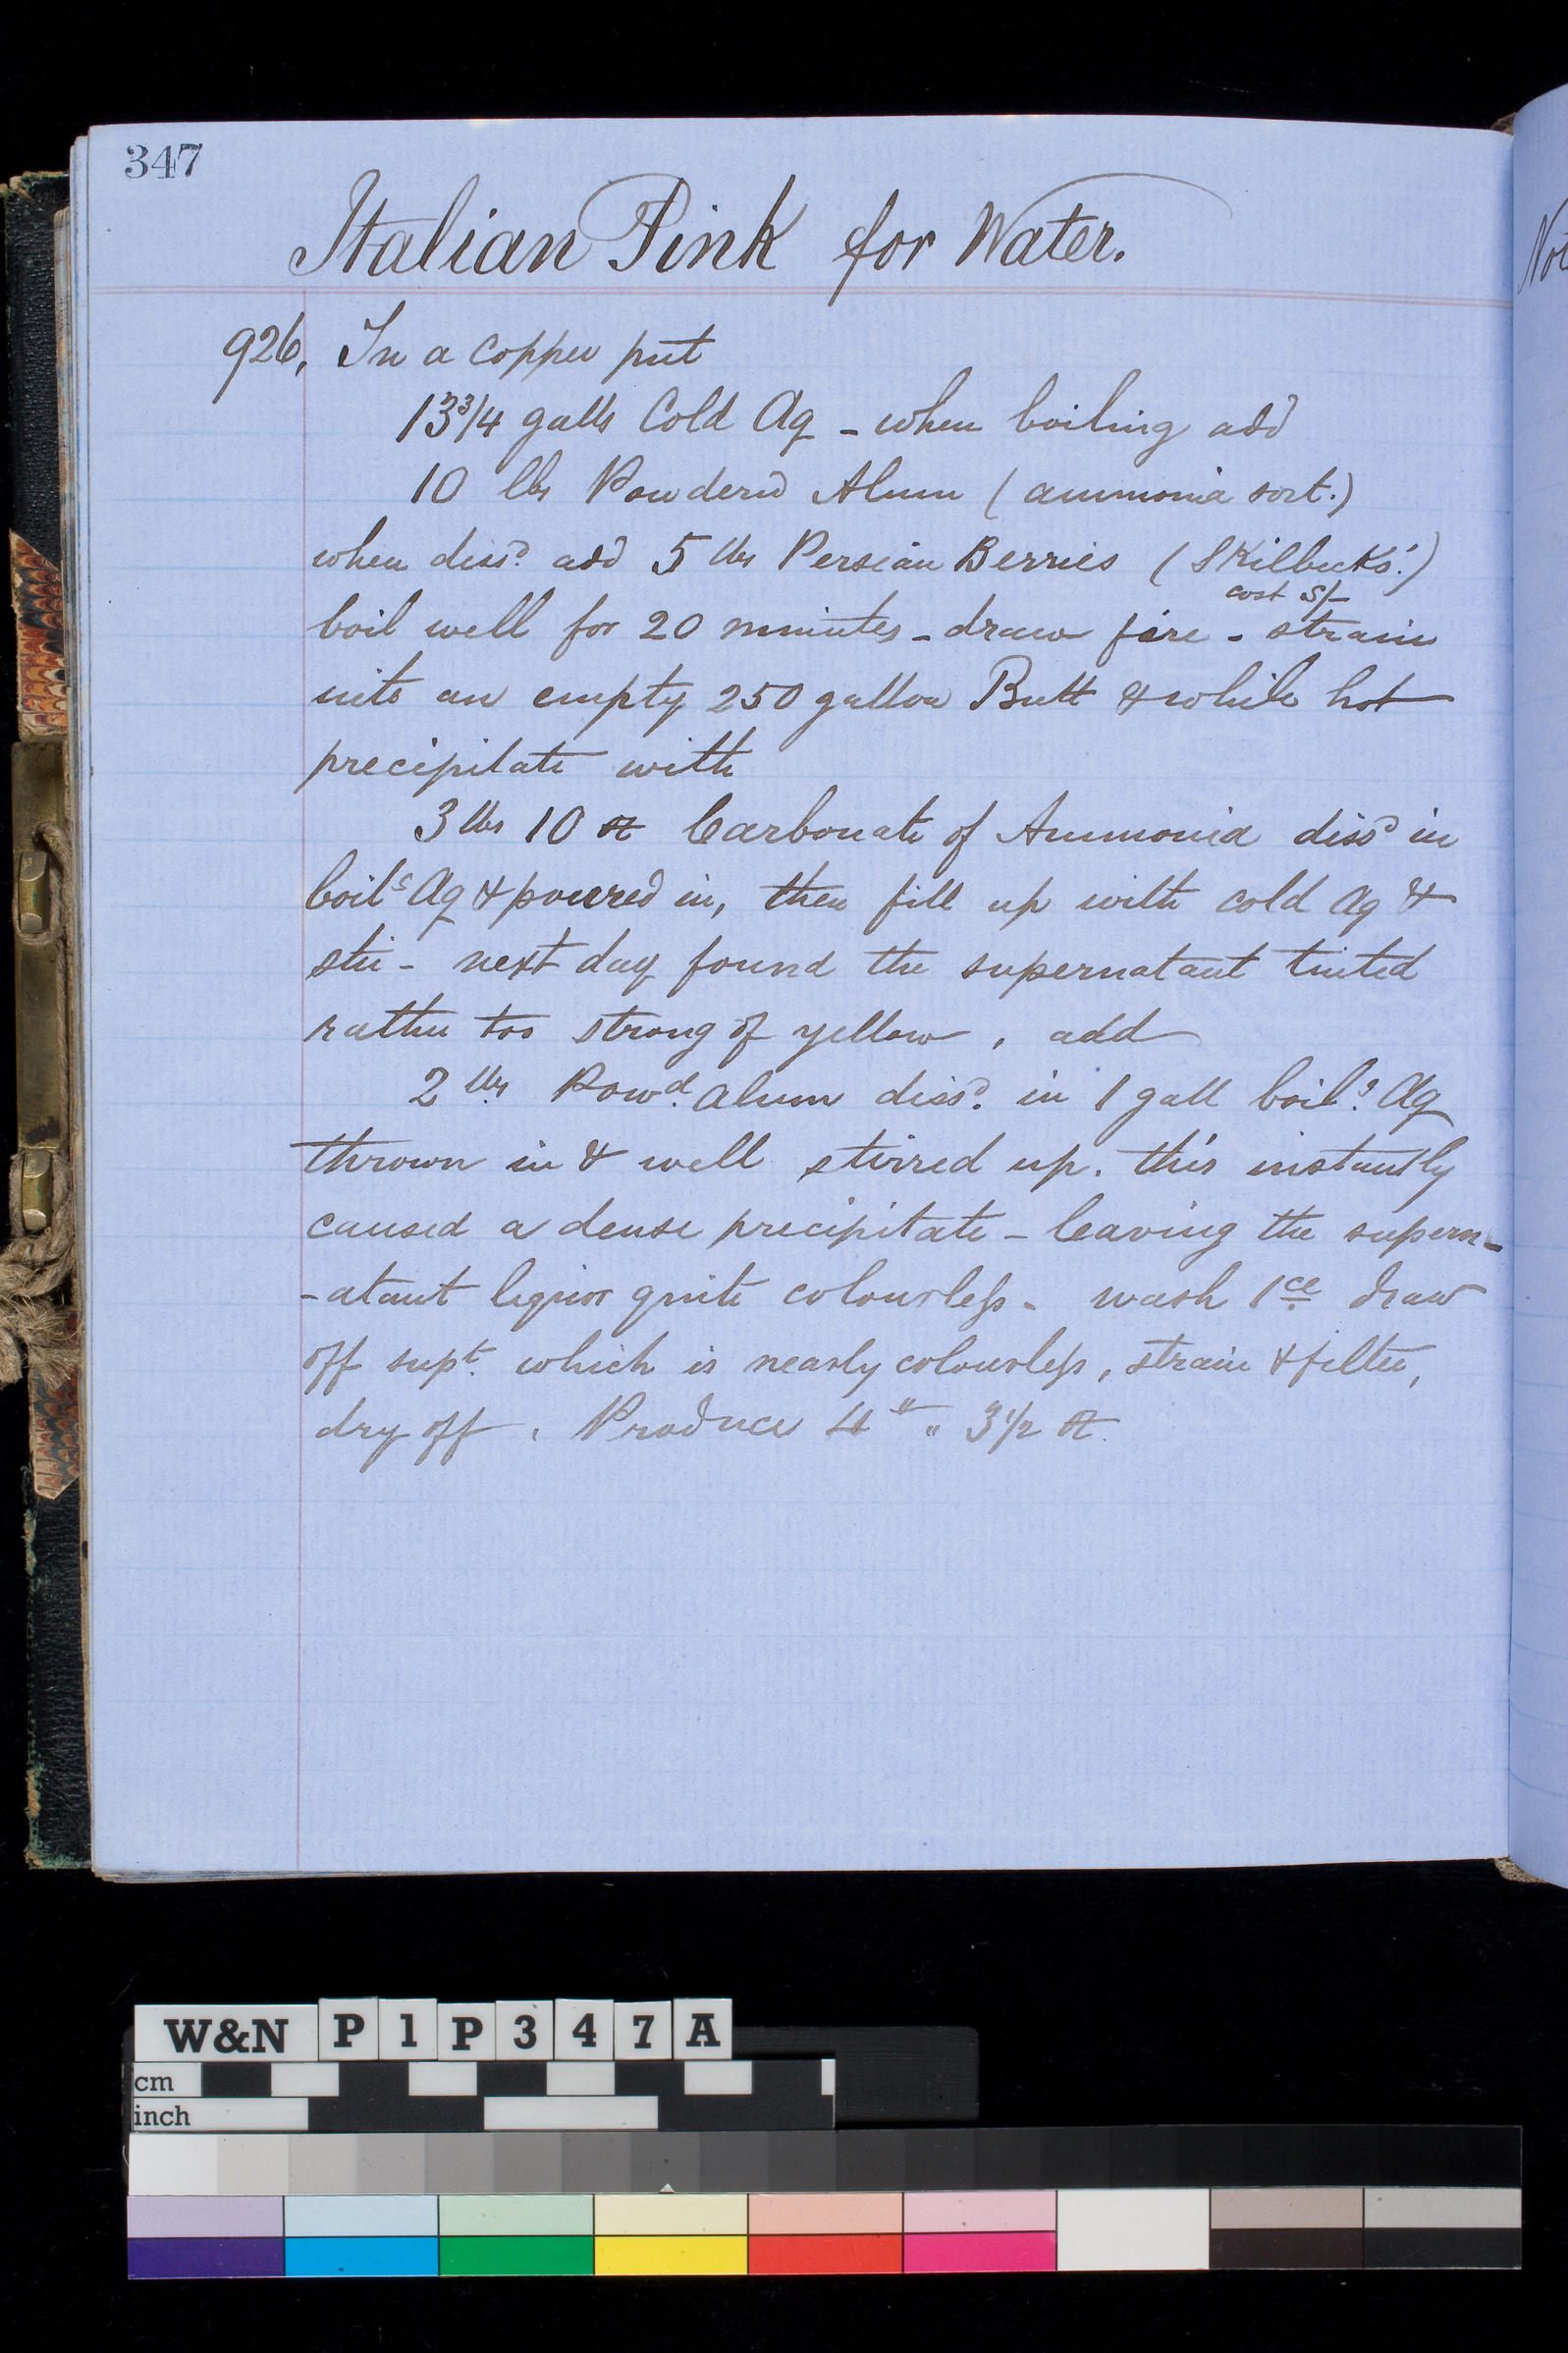 347
Italian Pink for Water.
926, In a copper put
13 3/4 galls Cold Aq - when boiling add
10 lbs Powdered Alum (ammonia sort.)
when dissd. add 5 lbs Persian Berries (Skilbeck's.)
cost 5/-
boil well for 20 minutes - draw fire - strain
into an empty 250 gallon Butt & while hot
precipitate with
3 lbs 10 oz Carbonate of Ammonia dissd in
boilg Aq & poured in, then fill up with cold Aq &
stir - next day found the supernatant tinted
rather too strong of yellow, add
2 lbs Powd. Alum dissd. in 1 gall boilg. Aq
thrown in & well stirred up. this instantly
caused a dense precipitate - leaving the supern-
-atant liquor quite colourless - wash 1ce draw
off supt. which is nearly colourless, strain & filter,
dry off. Produce 4 lb " 3 1/2 oz.
Not
W&N P1P347A
cm
inch